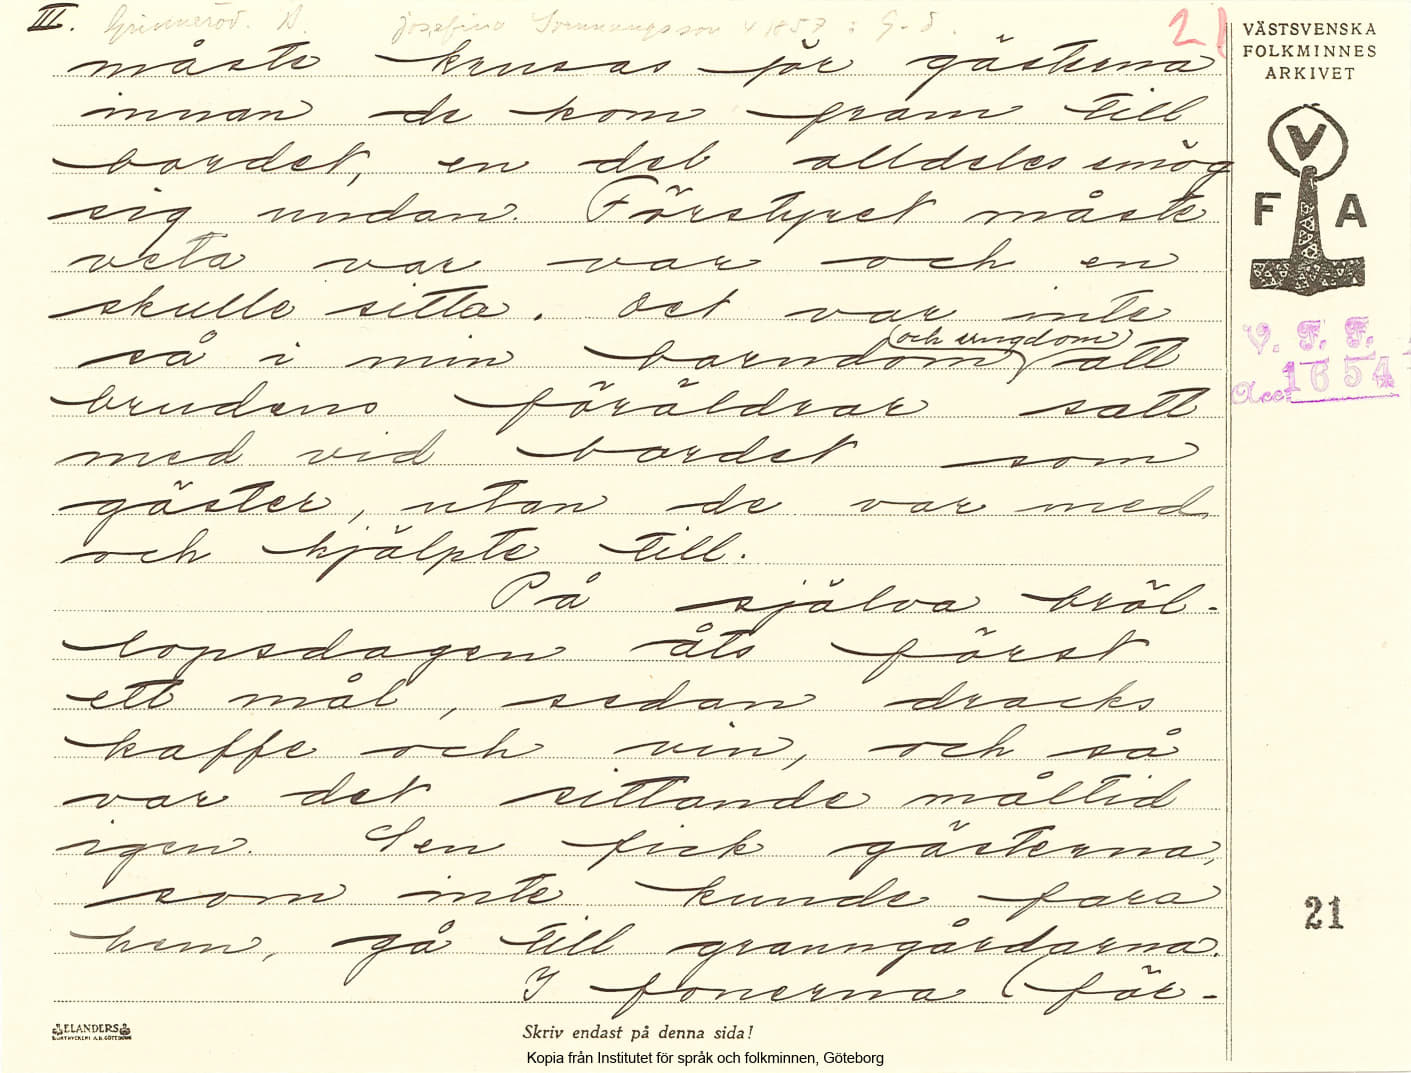 III. Grinneröd. B. Josefina 1857 : G-d. 21
måste krusas för gästerna
innan de kom fram till
bordet, en del alldeles smög
sig undan. Förstyret måste
veta var var och en
skulle sitta. Det var inte
så i min barndom (och ungdom) att
brudens föräldrar satt
med vid bordet som
gäster, utan de var med
och hjälpte till.
På själva bröl-
lopsdagen åts först
ett mål, sedan dracks
kaffe och vin, och så
var det sittande måltid
igen. Sen fick gästerna,
som inte kunde fara
hem, gå till granngårdarna.
I fonerna (för-
VÄSTSVENSKA
FOLKMINNES
ARKIVET
V
F A
V. F. F.
Acc. 1654
21
ELANDERS
BOKTRYCKERI A.B. GÖTEBORG
Skriv endast på denna sida!
Kopia från Institutet för språk och folkminnen, Göteborg